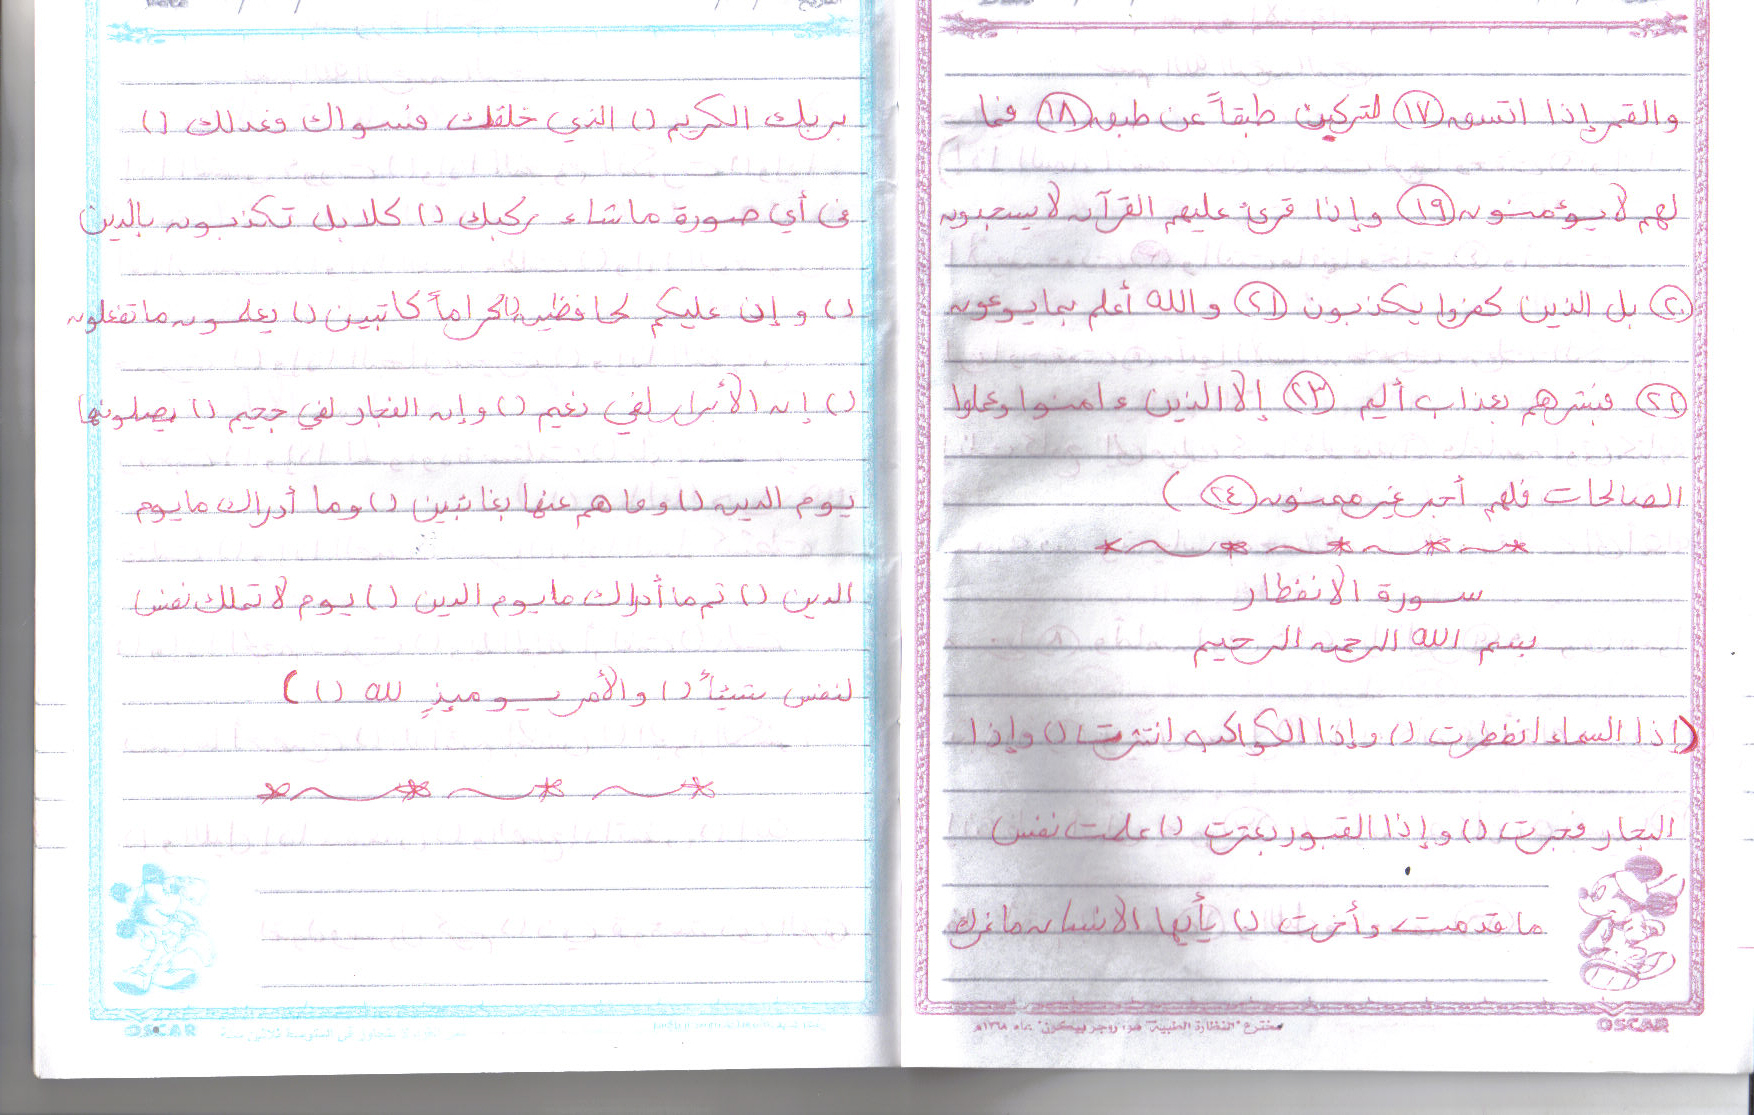 والقمر إذا اتسق (١٧) لتركبن طبقاً عن طبق (١٨) فما
لهم لا يؤمنون (١٩) وإذا قرئ عليهم القرآن لا يسجدون
(٢٠) بل الذين كفروا يكذبون (٢١) والله أعلم بما يوعون
(٢٢) فبشرهم بعذاب أليم (٢٣) إلا الذين ءامنوا وعملوا
الصالحات فلهم أجر غير ممنون (٢٤) )
سورة الانفطار
بسم الله الرحمن الرحيم
(إذا السماء انفطرت () وإذا الكواكب انتثرت () وإذا
البحار فجرت () وإذا القبور بعثرت () علمت نفس
ما قدمت وأخرت () يأيها الانسان ما غرك
مخترع "النظارة الطبية" هو: روجر بيكون" عام ١٢٦٨م
OSCAR
بربك الكريم () الذي خلقك فسواك فعدلك ()
في أي صورة ما شاء ركبك () كلا بل تكذبون بالدين
() وإن عليكم لحافظين () كراماً كاتبين () يعلمون ما تفعلون
() إن الأبرار لفي نعيم () وإن الفجار لفي جحيم () يصلونها
يوم الدين () وما هم عنها بغائبين () وما أدراك ما يوم
الدين () ثم ما أدراك ما يوم الدين () يوم لا تملك نفس
لنفس شيئاً () والأمر يومئذٍ لله () )
OSCAR